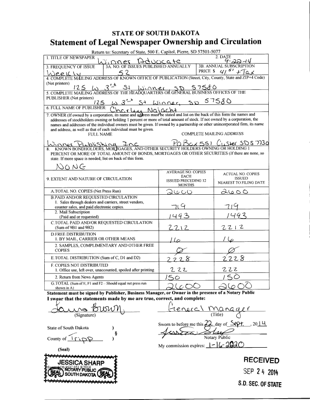 STATE OF SOUTH DAKOTA
Statement of Legal Newspaper Ownership and Circulation
Return to: Secretary of State, 500 E. Capitol, Pierre, SD 57501-5077
1. TITLE OF NEWSPAPER Winner Advocate
2. DATE 9-22-14
3. FREQUENCY OF ISSUE Weekly
3A. NO. OF ISSUES PUBLISHED ANNUALLY 52
3B. ANNUAL SUBSCRIPTION PRICE $
4. COMPLETE MAILING ADDRESS OF KNOWN OFFICE OF PUBLICATION (Street, City, County, State and ZIP+4 Code)
(Not printers)
125 W 3rd St Winner, SD 57580
5. COMPLETE MAILING ADDRESS OF THE HEADQUARTERS OF GENERAL BUSINESS OFFICES OF THE
PUBLISHER (Not printer)
125 W 3rd St Winner, SD 57580
6. FULL NAME OF PUBLISHER Charley Najacht
7. OWNER (If owned by a corporation, its name and address must be stated and list on the back of this form the names and
addresses of stockholders owning or holding 1 percent or more of total amount of stock. If not owned by a corporation, the
names and addresses of the individual owners must be given. If owned by a partnership or other unincorporated firm, its name
and address, as well as that of each individual must be given.
FULL NAME COMPLETE MAILING ADDRESS
Winner Publishing Inc PO Box 551 Custer SD 57730
8. KNOWN BONDHOLDERS, MORTGAGEES, AND OTHER SECURITY HOLDERS OWNING OR HOLDING 1
PERCENT OR MORE OF TOTAL AMOUNT OF BONDS, MORTGAGES OR OTHER SECURITIES (If there are none, so
state. If more space is needed, list on back of this form.
NONE
9. EXTENT AND NATURE OF CIRCULATION
AVERAGE NO. COPIES
EACH
ISSUED PRECEDING 12
MONTHS
ACTUAL NO. COPIES
ISSUED
NEAREST TO FILING DATE
A. TOTAL NO. COPIES (Net Press Run) 2600 2600
B. PAID AND/OR REQUESTED CIRCULATION
1. Sales through dealers and carriers, street vendors,
counter sales, and paid electronic copies. 719 719
2. Mail Subscription
(Paid and/or requested) 1493 1493
C. TOTAL PAID AND/OR REQUESTED CIRCULATION
(Sum of 9B1 and 9B2) 2212 2212
D. FREE DISTRIBUTION
1. BY MAIL, CARRIER OR OTHER MEANS 16 16
2. SAMPLES, COMPLIMENTARY AND OTHER FREE
COPIES Ø Ø
E. TOTAL DISTRIBUTION (Sum of C, D1 and D2) 2228 2228
F. COPIES NOT DISTRIBUTED
1. Office use, left over, unaccounted, spoiled after printing 222 222
2. Return from News Agents 150 150
G. TOTAL (Sum of E, F1 and F2 - Should equal net press run
shown in A) 2600 2600
Statement must be signed by Publisher, Business Manager, or Owner in the presence of a Notary Public
I swear that the statements made by me are true, correct, and complete:
Brown General Manager
(Signature) (Title)
State of South Dakota )
Sworn to before me this 22 day of Sept. 2014
County of Tripp )
Notary Public
(Seal)
My commission expires: 1-16-2020
JESSICA SHARP
NOTARY PUBLIC
SOUTH DAKOTA
SEAL
SEAL
RECEIVED
SEP 24 2014
S.D. SEC. OF STATE